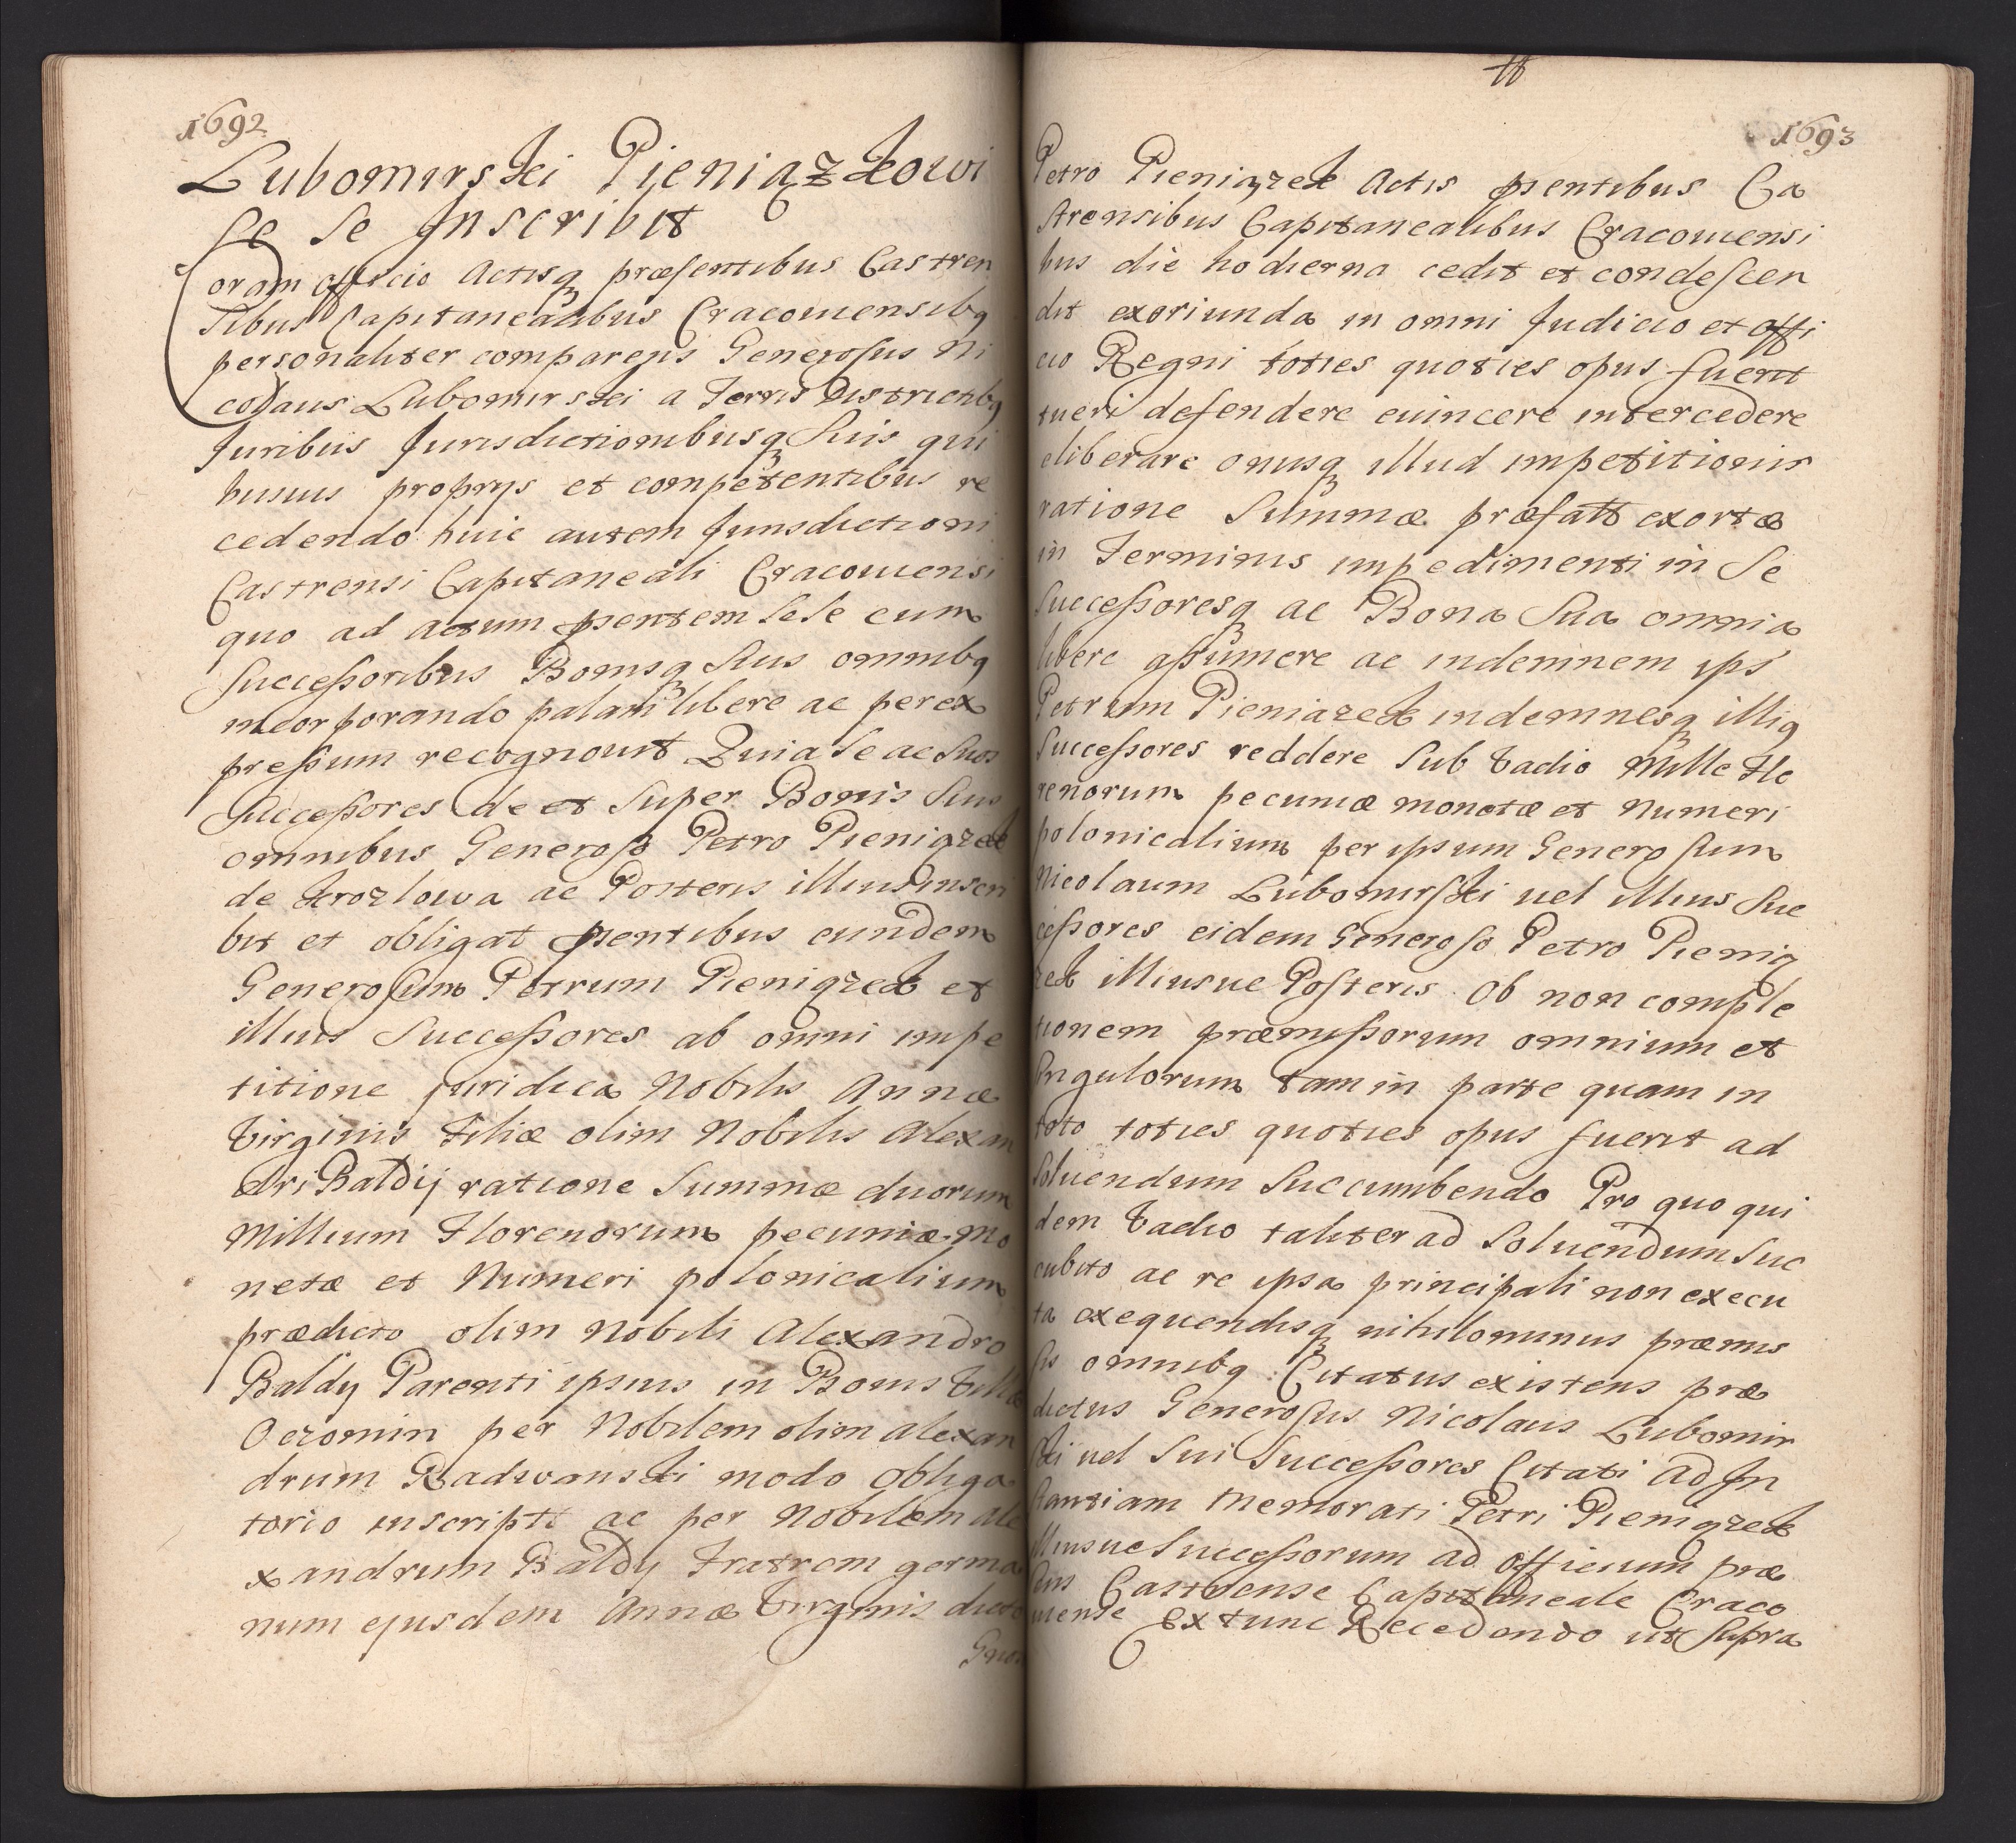 1692
Lubomirski Pieniązkowi
se se Inscribit
Coram officio Actisq praesentibus Castren
sibus Capitanealibus Cracouiensibq
personaliter comparens Generosus Ni
colaus Lubomirski a Terris Districtibq
Juribus Jurisdictionibusq Suis qui
busuis proprys et competentibus re
cedendo huic autem Jurisdictioni
Castrensi Capitaneali Cracouiensi
quo ad actum psentem sese cum
Successoribus Bonisq Suis omnibq
incorporando palam libere ac perex
pressum recognouit Quia Se ac Suos
Successores de et Super Bonis Suis
omnibus Generoso Petro Pieniązek
de Krozlowa ac Posteris illius inscri
bit et obligat psentibus eundem
Generosum Petrum Pieniązek et
illius Successores ab omni impe
titione juridica Nobilis Annae
Virginis Filiae olim Nobilis Alexan
dri Baldij ratione Summae duorum
Millium Florenorum pecuniae mo
netae et Numeri polonicalium
praedicto olim Nobili Alexandro
Baldy Parenti ipsius in Bonis Villae
Oczomin per Nobilem olim Alexan
drum Radwanski modo obliga
torio inscriptt ac per Nobilem Ale
xandrum Baldy Fratrem germa
num ejusdem Annae Virginis dicto
Gnoso
1693
Petro Pieniązek Actis psentibus Ca
strensibus Capitanealibus Cracouiensi
bus die hodierna cedit et condescen
dit exoriunda in omni Judicio et offi
cio Regni toties quoties opus fuerit
tueri defendere euincere intercedere
eliberare onusq illud impetitionis
ratione Summae praefatt exortae
in Terminis impedimenti in Se
Successoresq ac Bona Sua omnia
libere assumere ac indemnem ips
Petrum Pieniazek indemnesq illiq
Successores reddere Sub Vadio Mille Flo
renorum pecuniae monetae et Numeri
polonicalium per ipsum Generosum
Nicolaum Lubomirski uel illius Suc
cessores eidem Generoso Petro Pienią
zek illiusue Posteris Ob non comple
tionem praemissorum omnium et
Singulorum tam in parte quam in
toto toties quoties opus fuerit ad
Soluendum Succumbendo Pro quo qui
dem Vadio taliter ad Soluendum Suc
cubito ac re ipsa principali non execu
ta exequendisq nihilominus praemis
sis omnibq Citatus existens prae
dictus Generosus Nicolaus Lubomir
ski uel Sui Successores Citati ad In
stantiam Memorati Petri Pieniązek
illiusue Successorum ad officium prae
sens Castrense Capitaneale Craco
uiense Extunc Recedendo ut Supra